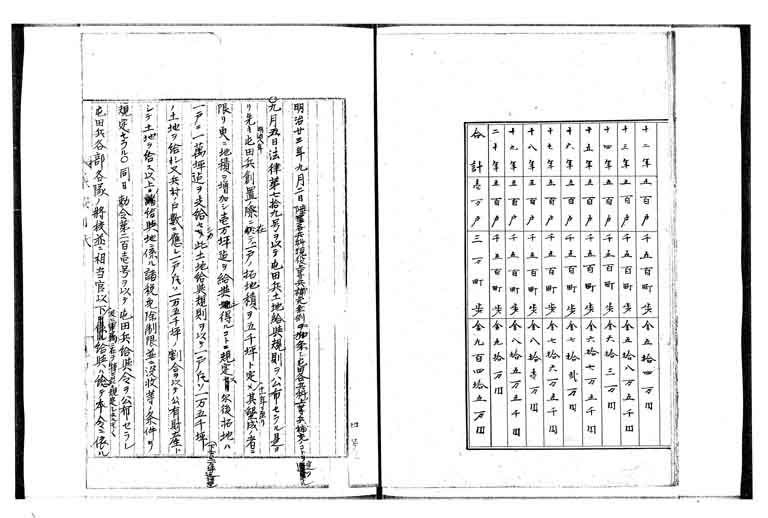 十二年 五百戸 千五百町歩 金五拾四万円
十三年 五百戸 千五百町歩 金五拾八万五千円
十四年 五百戸 千五百町歩 金六拾三万円
十五年 五百戸 千五百町歩 金六拾七万五千円
十六年 五百戸 千五百町歩 金七拾弐万円
十七年 五百戸 千五百町歩 金七拾六万五千円
十八年 五百戸 千五百町歩 金八拾壱万円
十九年 五百戸 千五百町歩 金八拾五万五千円
二十年 五百戸 千五百町歩 金九拾万円
合計 壱万戸 三万町歩 金九百四拾五万円
明治廿三年九月二日
〇九月五日法律第七拾九号ヲ以テ屯田兵土地給与規則ヲ公布セラル是
ヨリ先キ明治八年屯田兵創置ノ際ニ在リテ一戸ノ拓地積ヲ五千坪ト定メ其墾成ノ者ニ
限リ更ニ地積ヲ増加シ壱万坪迄ヲ給与シ得ルコトニ規定 尓後拓地ハ
一戸ニ一萬坪迄ヲ支給セシカ此土地給与規則ヲ以テ一戸ニ凡ソ一万五千坪
ノ土地ヲ給シ又兵村ノ戸数ニ應シ一戸凡ソ一万五千坪ノ割合ヲ以テ公有財産ト
シテ土地ヲ給ス以上ノ給与地ニ係ル諸税免除制限並ニ没収等ノ条件ヲ
規定セラル〇同日勅令第二百壱号ヲ以テ屯田兵給与令ヲ公布セラレ
屯田兵各部各隊ノ将校並ニ相当官以下ノ給与ハ総テ本令ニ依ル